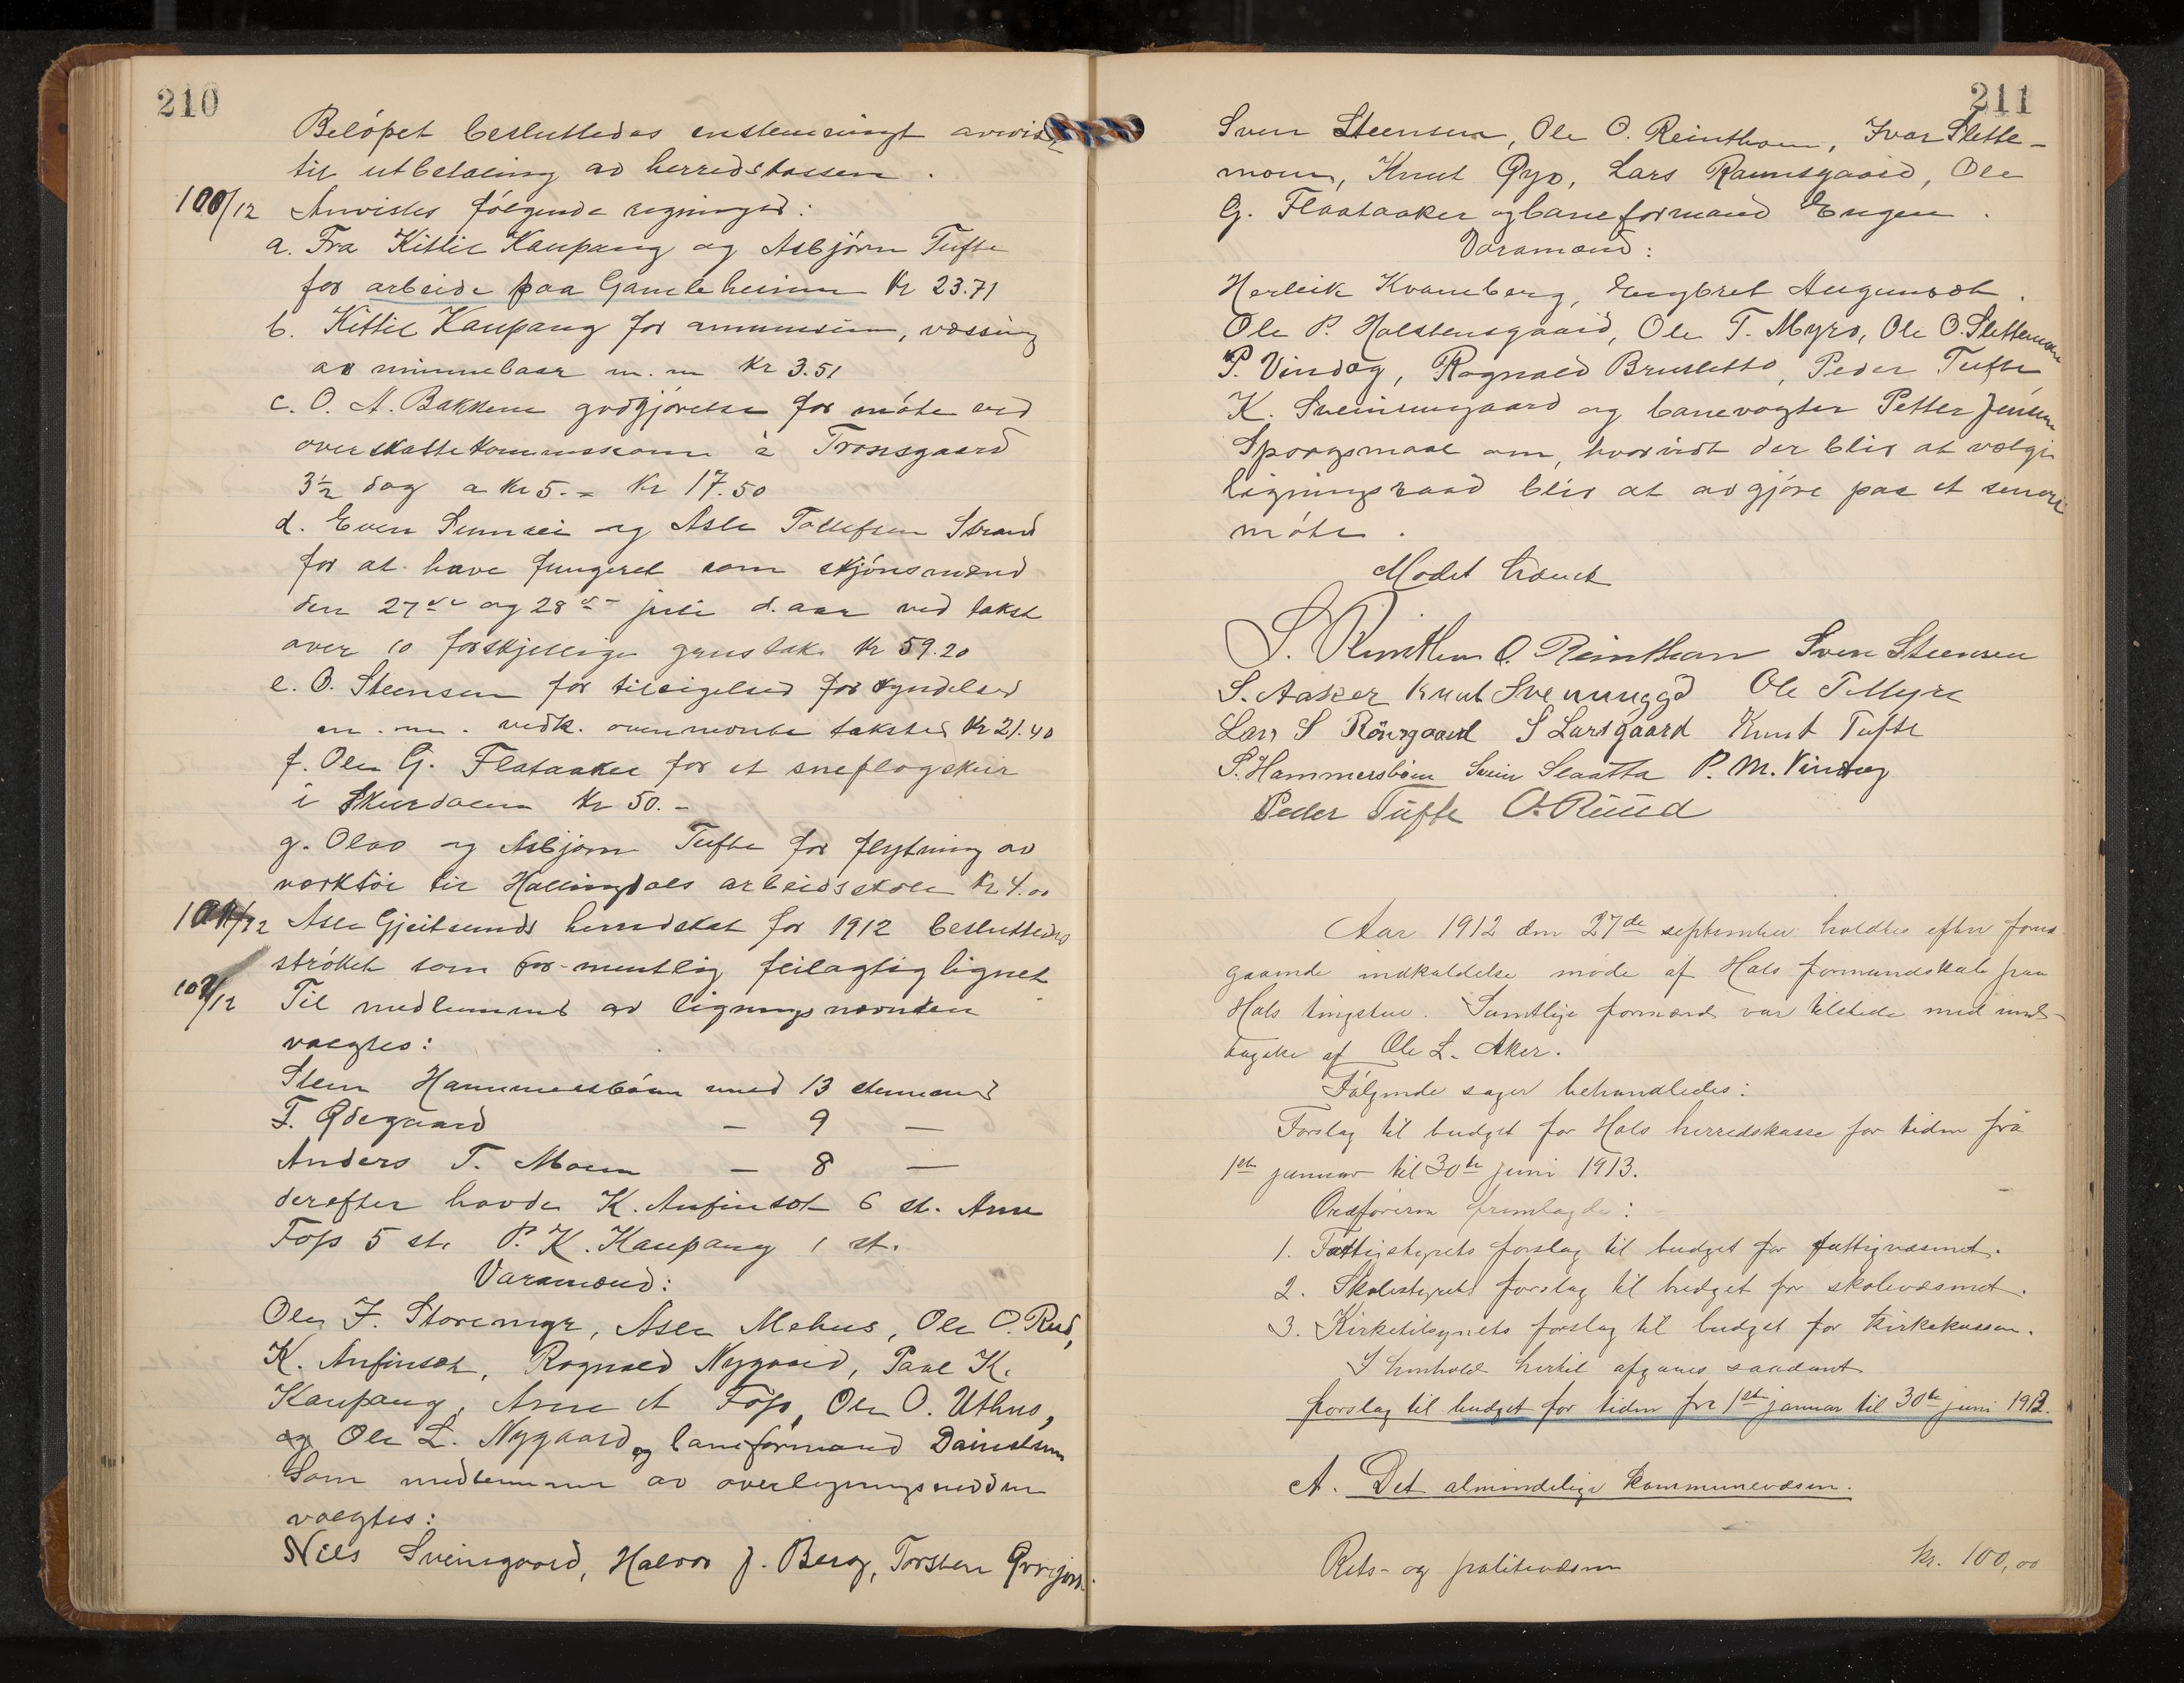 210
Beløpet besluttedes enstemmigt anvist
til utbetaling av herredskassen.
100/12 Anvistes følgende regninger:
a. Fra Kittil Kaupang og Asbjørn Tufte
for arbeide paa Gamleheimen Kr 23.71
b. Kittil Kaupang for annonsering, 
av minnebaar m.m Kr 3.51
c. O. A. Bakkene godtgjørelse for møte ved
overskattekommissionen i Tronsgaard
3½ dag a Kr 5.- Kr 17.50
d. Even Sunrei og Asle Tollefsen Strand
for at have fungeret som skjønsmænd
den 27de og 28de juli d. aar ved takst
over 10 forskjellige grustak Kr 59.20
e. O. Steensen for tilsigelser forkyndelser
m.m. vedk. ovennevnte takster Kr 21.40
f. Ole G. Flataaker for et sneplogskur
i Skurdalen Kr 50.-
g. Olav og Asbjørn Tufte for flytning av
verktøi til Hallingdals arbeidsskole Kr 4.00
101/12 Asle Gjeitsunds herredskat for 1912 besluttedes
strøket som formentlig feilagtig lignet
102/12 Til medlemmer av ligningsnevnden
valgtes:
Sten Hammersbøen med 13 stemmer
T. Ødegaard — 9 —
Anders T. Moen — 8 —
derefter havde K. Anfinset 6 st. Arne
Foss 5 st. P. K. Kaupang 1 st.
Varamænd:
Ole F. Storemyr, Asle Mehus, Ole O. Rud,
K. Anfinset, Ragnald Nygaard, Paul K.
Kaupang, Arne A Foss, Ole O. Uthus,
og Ole L. Nygaard og baneformand Danielsen
Som medlemmer av overligningsnevnden
valgtes:
Nils Sveinsgaard, Halvor J. Berg, Torsten
211
Sven Steensen, Ole O. Reinthon, Ivar Slette-
moen, Knut Øyo, Lars Raunsgaard, Ole
G. Flaataaker og baneformand Engen.
Varamænd:
Herleik Kvaneberg, Engbret Augunset.
Ole P. Halstensgaard, Ole T. Myro, Ole O. Slettemoen
P. Vindeg, Ragnald Brusletto, Peder Tufte,
K. Sveinungaard og banevogter Petter Jensen
Spørgsmaal om, hvorvidt der blir at vælge
ligningsraad blir at avgjøre paa et senere
møte.
Møtet hævet
S. Reinthon O. Reinthon Sven Steensen
S. Aaker Knut Svenunggd Ole T Myre
Lars S Rønsgaard S Larsgaard Knut Tufte
S. Hammersbøen Svein Slaatta P. M. Vindeg
Peder Tufte O. Ruud
Aar 1912 den 27de september holdtes efter forud
gaaende indkaldelse møde af Hols formandskab paa
Hols tingstue. Samtlige formænd var tilstede med und-
tagelse af Ole L. Aker.
Følgende sager behandledes:
Forslag til budget for Hols herredskasse for tiden frå
1ste januar til 30te juni 1913.
Ordføreren fremlagde:
1. Fattigstyrets forslag til budget for fattigvæsenet.
2. Skolestyrets forslag til budget for skolevæsenet.
3. Kirketilsynets forslag til budget for kirkekassen.
I henhold hertil afgaves saadant
forslag til budget for tiden fra 1ste januar til 30te juni 1913.
A. Det almindelige kommunevæsen.
Rets- og politivæsen kr. 100,00